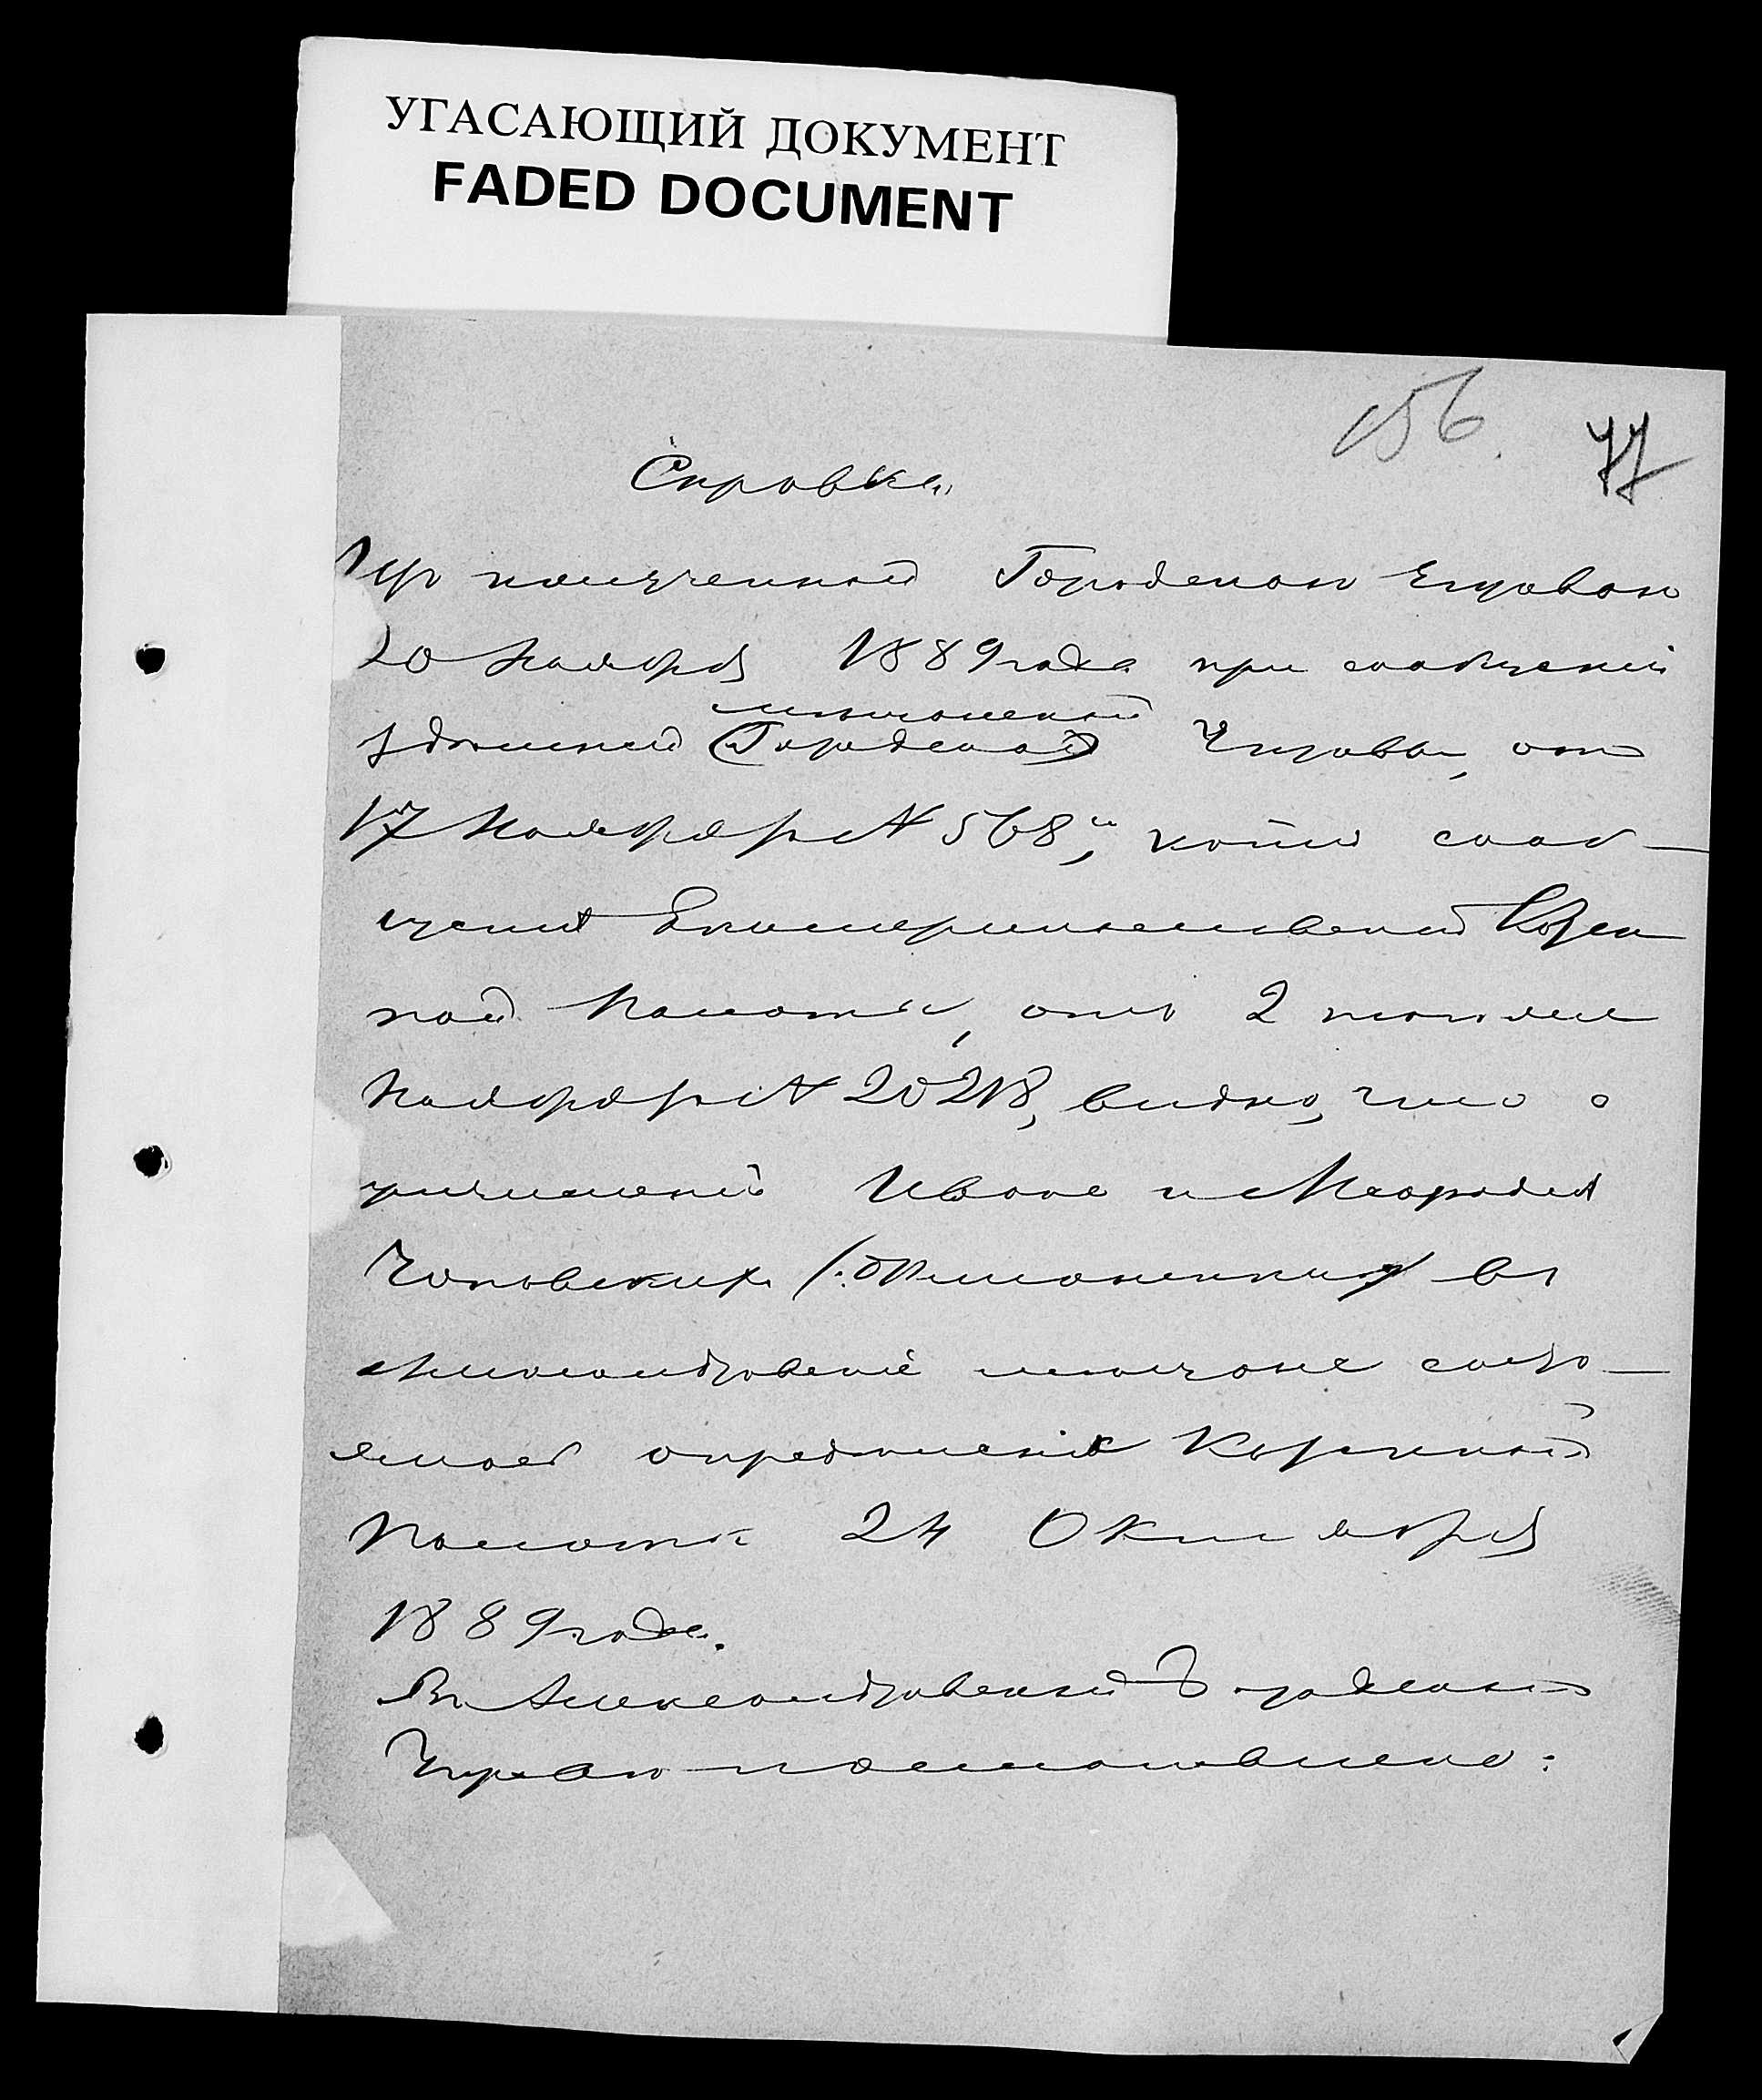 УГАСАЮЩИЙ ДОКУМЕНТ
FADED DOCUMENT
156. 77
Справка
Изъ полученной Городскою Управою
20 Ноября 1889 года при сообщеніи
мѣщанской
здѣшней (Городской) Управы, отъ
17 Ноября № 568, копіи сооб-
щенія Екатеринославской Казен
ной Палаты, отъ 2 того же
Ноября № 20218, видно, что о
причисленіи Ивана и
въ
Александровскіе мѣщане состо-
ялось опредѣленіе Казенной
Палаты 24 Октября
1889 года.
Въ Александровской Городской
Управѣ постановлено: